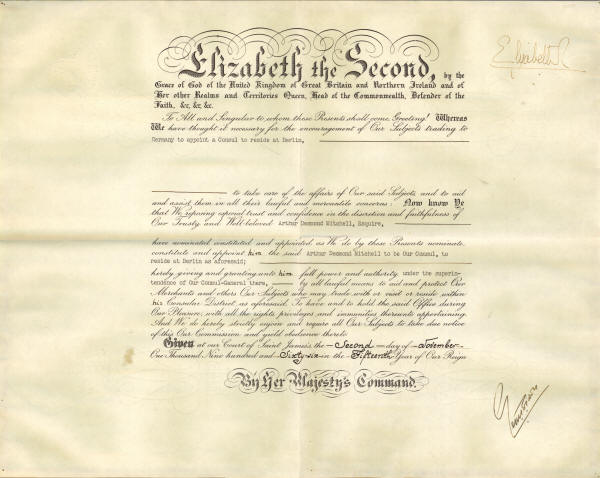 Elizabeth R
Elizabeth the Second, by the
Grace of God of the United Kingdom of Great Britain and Northern Ireland and of
Her other Realms and Territories Queen, Head of the Commonwealth, Defender of the
Faith, &c, &c, &c.
To All and Singular to whom these Presents shall come, Greeting! Whereas
We have thought it necessary for the encouragement of Our Subjects trading to
Germany to appoint a Consul to reside at Berlin,
to take care of the affairs of Our said Subjects, and to aid
and assist them in all their lawful and mercantile concerns: Now know Ye
that We, reposing especial trust and confidence in the discretion and faithfulness of
Our Trusty and Well-beloved Arthur Desmond Mitchell, Esquire,
have nominated, constituted and appointed, as We do by these Presents nominate,
constitute and appoint him the said Arthur Desmond Mitchell to be Our Consul, to
reside at Berlin as aforesaid;
hereby giving and granting unto him full power and authority under the superin-
tendence of Our Consul-General there, by all lawful means to aid and protect Our
Merchants and others Our Subjects who may trade with or visit or reside within
his Consular District, as aforesaid. To have and to hold the said Office during
Our Pleasure, with all the rights, privileges and immunities thereunto appertaining.
And We do hereby strictly enjoin and require all Our Subjects to take due notice
of this Our Commission and yield obedience thereto.
Given at our Court of Saint James's, the Second day of November
One Thousand Nine hundred and Sixty-six in the Fifteenth Year of Our Reign
By Her Majesty's Command.